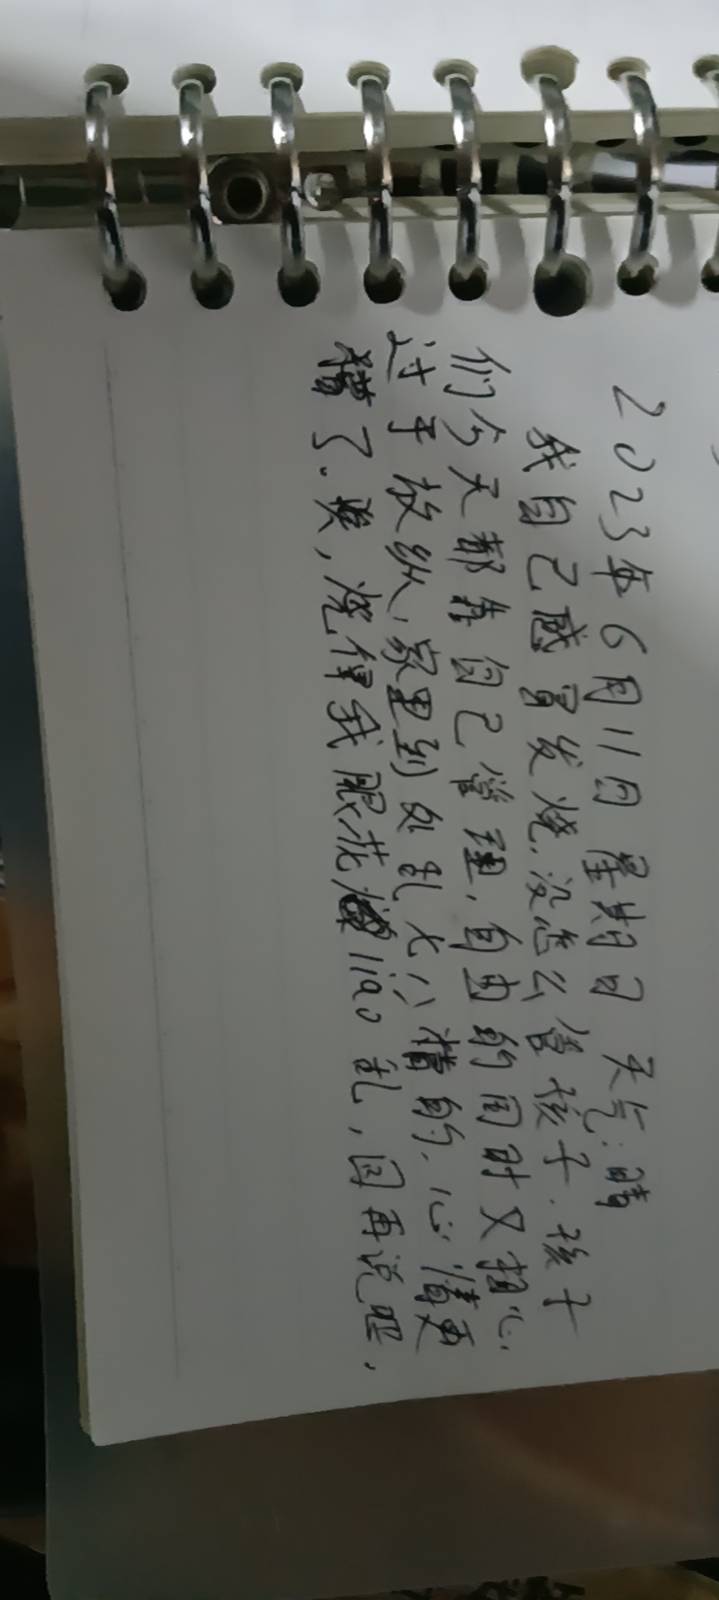 2023年6月11日 星期日 天气:晴
我自己感冒发烧,没怎么管孩子.孩子
们今天都在自己管理,自由的同时又担心
过于放纵,家里到处乱七八糟的,心情更
糟了.唉,烧得我眼花liao乱,回再说吧,